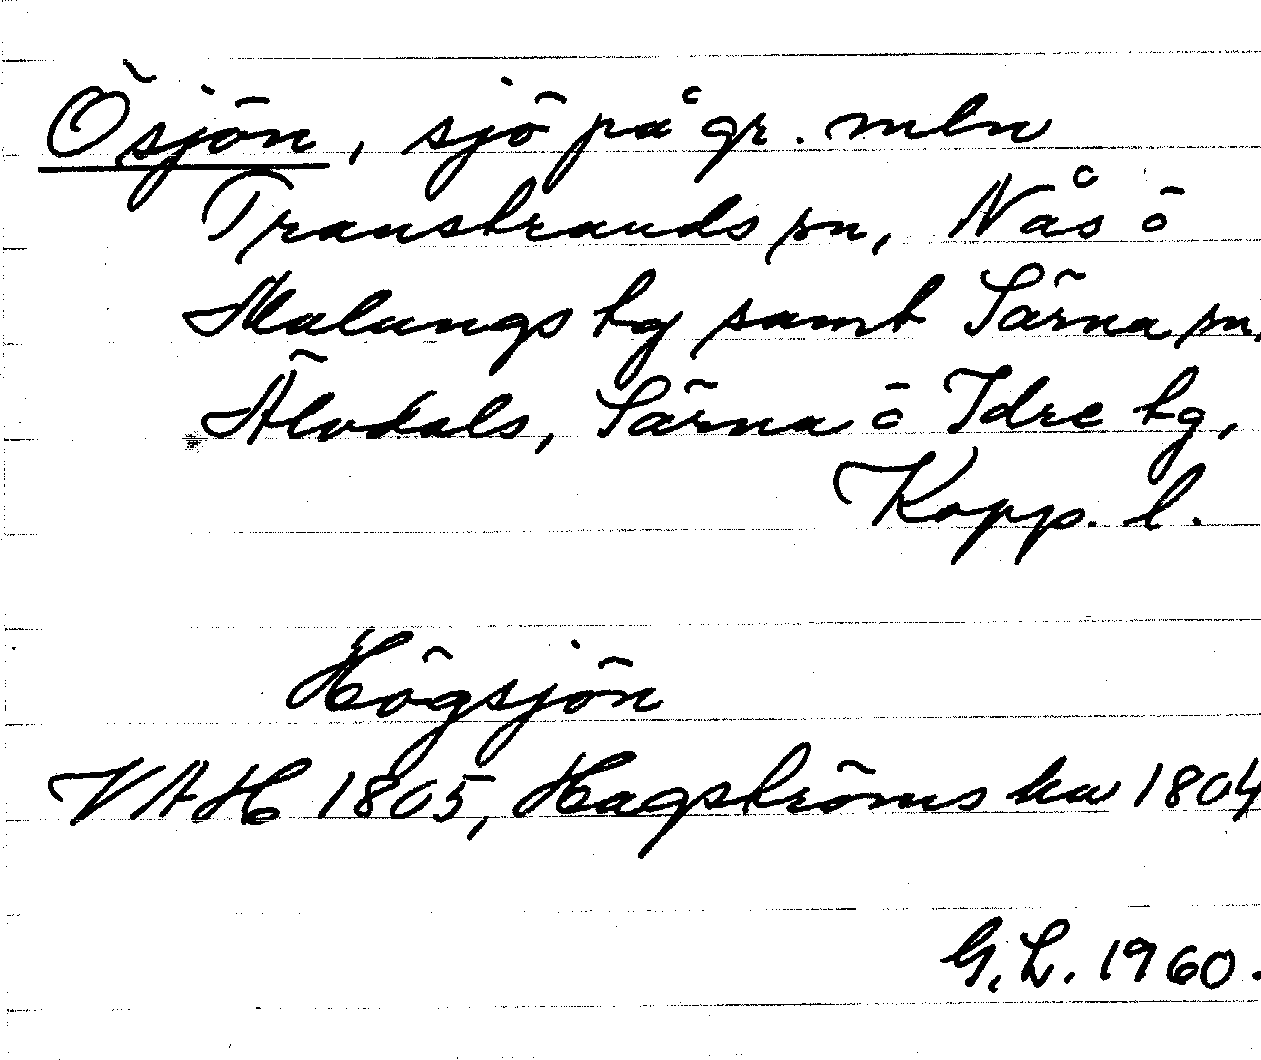 Ösjön, sjö på gr. mln
Transtrands sn, Nås o
Malungs tg samt Särna sn,
Älvdals, Särna o Idre tg,
Kopp. l.
Högsjön
VAH 1805, Hagströms ka 1804
G. L. 1960.